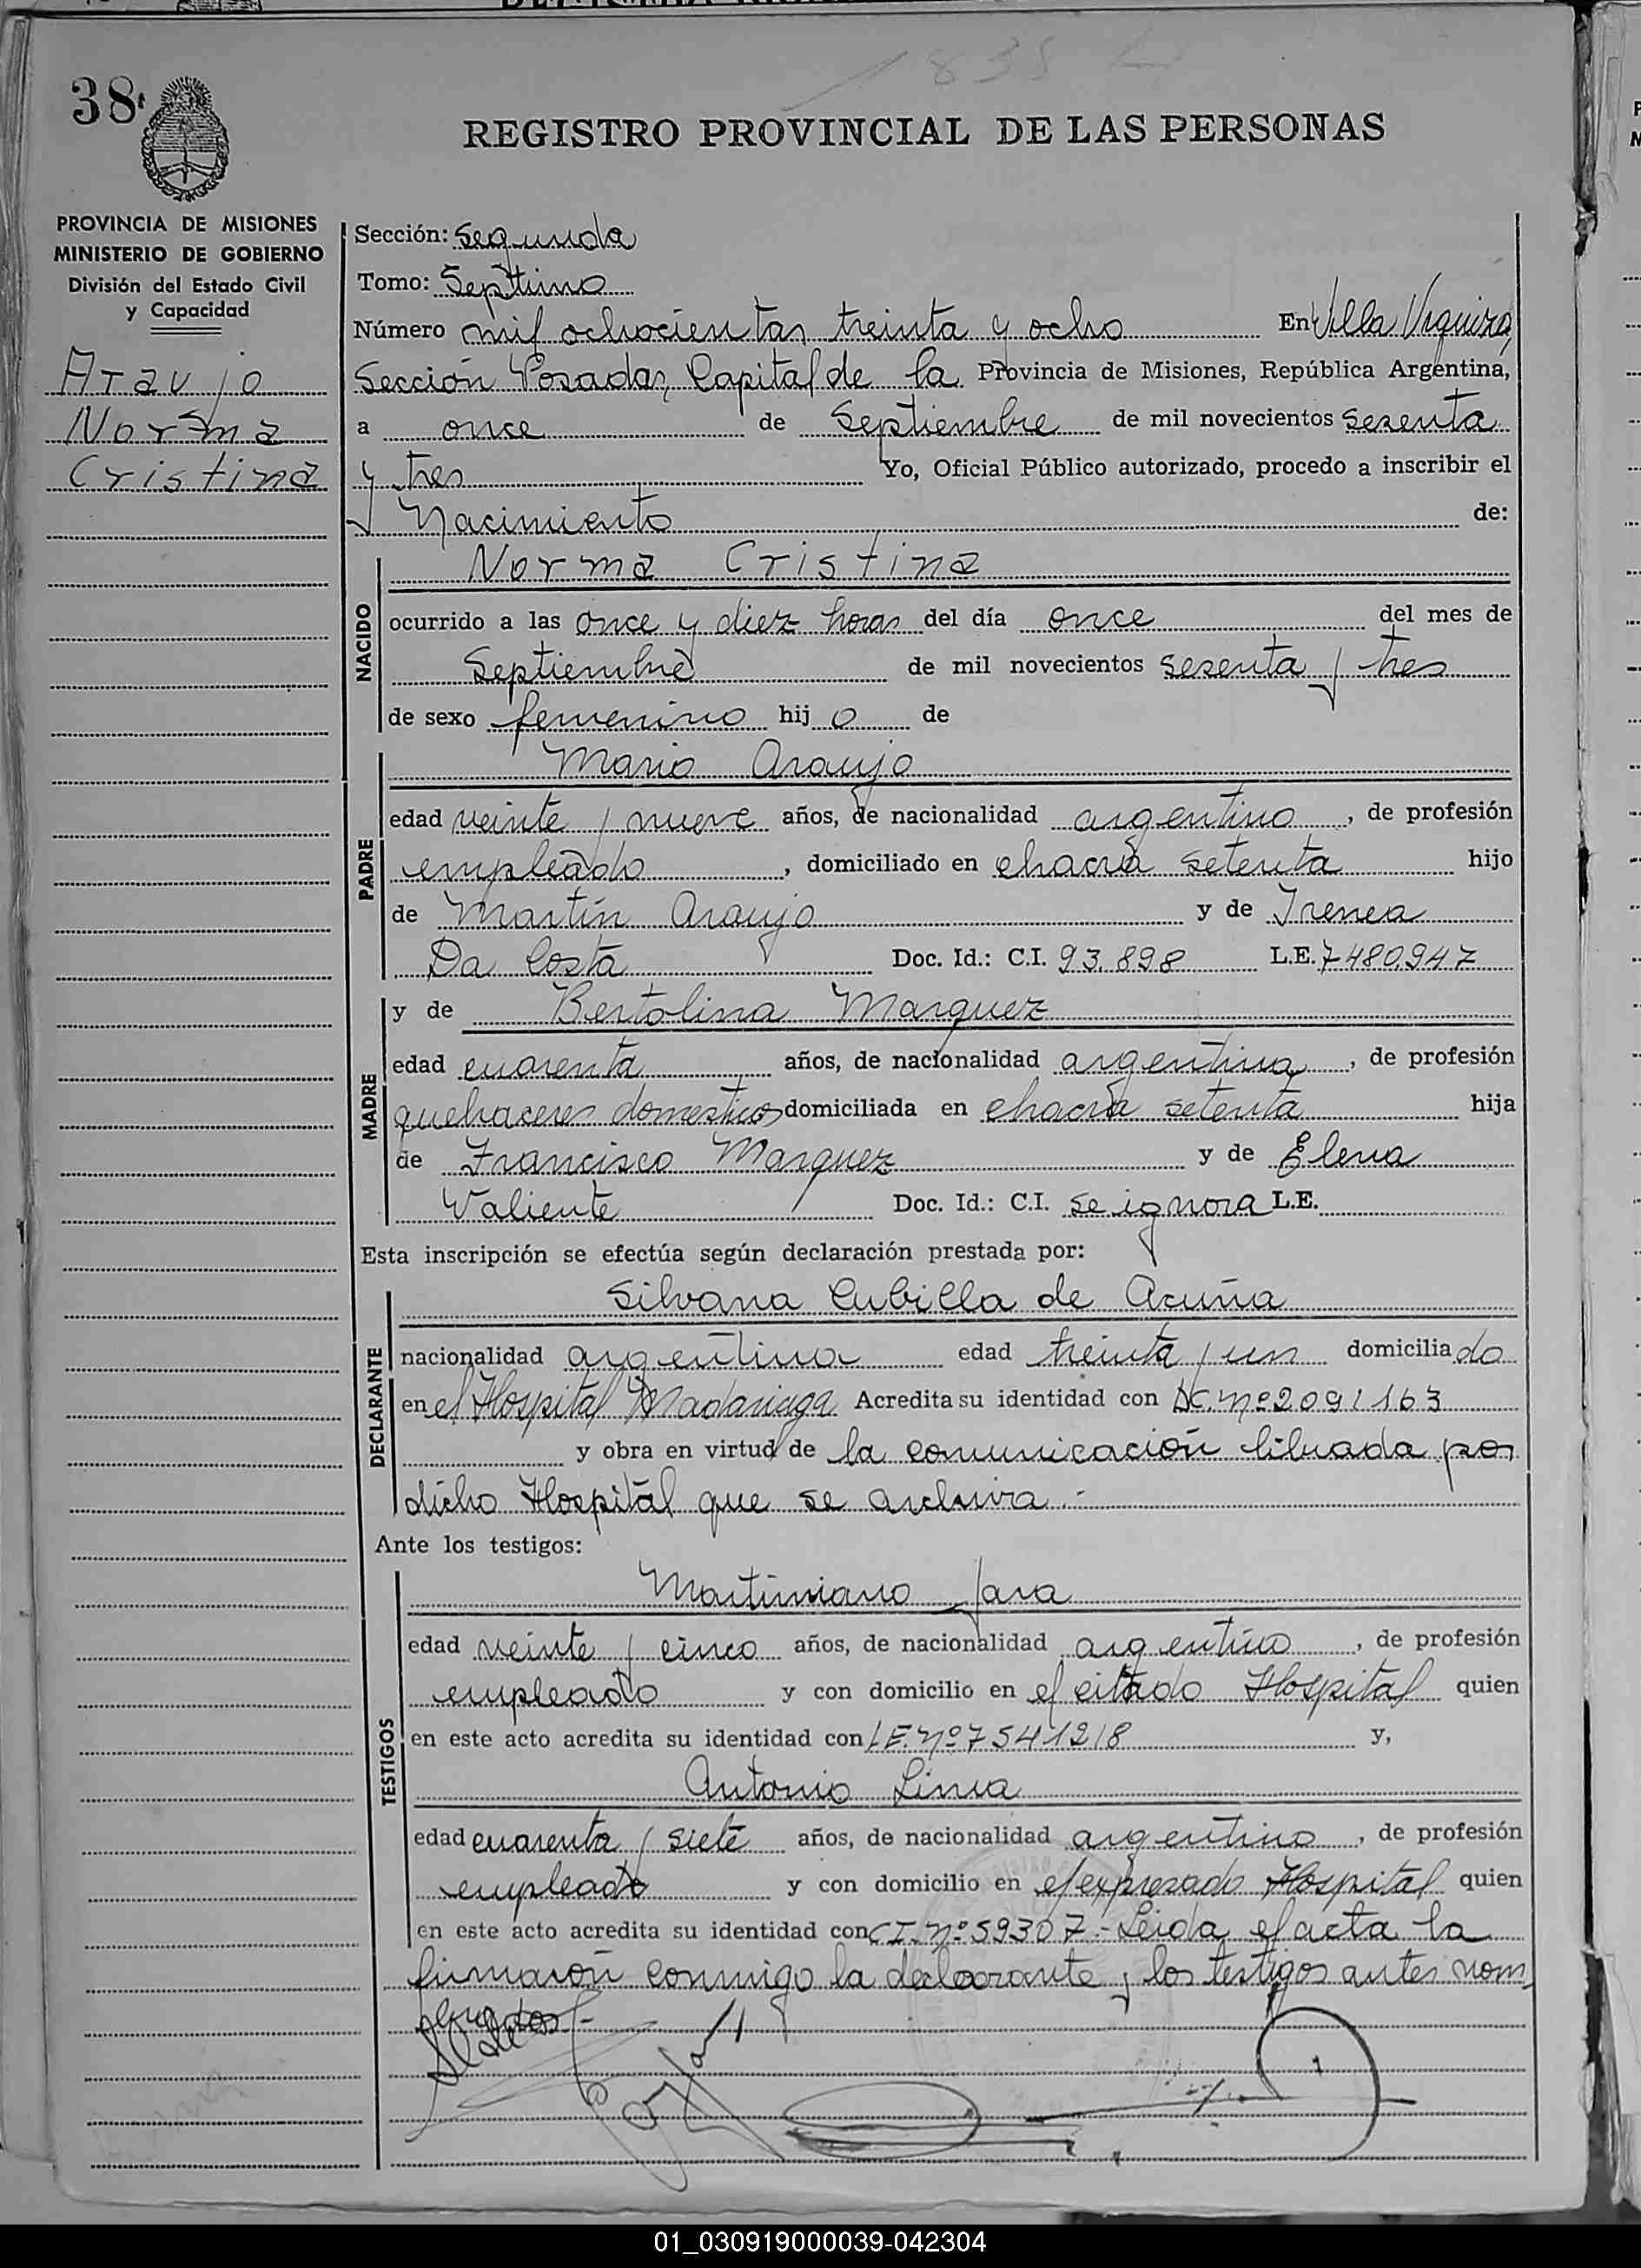 1838
38
REGISTRO PROVINCIAL DE LAS PERSONAS
PROVINCIA DE MISIONES
MINISTERIO DE GOBIERNO
División del Estado Civil
y Capacidad
Araujo
Norma
Cristina
Sección: Segunda
Tomo: Septimo
Número mil ochocientas treinta y ocho En Villa Urquiza,
Sección Posadas, Capital de la Provincia de Misiones, República Argentina,
a once de Septiembre de mil novecientos sesenta
y tres Yo, Oficial Público autorizado, procedo a inscribir el
Nacimiento de:
NACIDO
Norma Cristina
ocurrido a las once y diez horas del día once del mes de
Septiembre de mil novecientos sesenta y tres
de sexo femenino hij o de
PADRE
Mario Araujo
edad veinte y nueve años, de nacionalidad argentino, de profesión
empleado, domiciliado en chacra setenta hijo
de Martín Araujo y de Irenea
Da Costa Doc. Id.: C.I. 93.898 L.E. 7480.947
MADRE
y de Bertolina Marquez
edad cuarenta años, de nacionalidad argentina, de profesión
quehaceres domesticos domiciliada en chacra setenta hija
de Francisco Marquez y de Elena
Valiente Doc. Id.: C.I. se ignora L.E.
Esta inscripción se efectúa según declaración prestada por:
DECLARANTE
Silvana Cubilla de Acuña
nacionalidad argentina edad treinta y un domicilia da
en el Hospital Madariaga Acredita su identidad con LC. Nº 2091163
y obra en virtud de la comunicación librada por
dicho Hospital que se archiva.-
Ante los testigos:
TESTIGOS
Martiniano Jara
edad veinte y cinco años, de nacionalidad argentino, de profesión
empleado y con domicilio en el citado Hospital quien
en este acto acredita su identidad con L.E. Nº 7541218 y,
Antonio Lima
edad cuarenta y siete años, de nacionalidad argentino, de profesión
empleado y con domicilio en el expresado Hospital quien
en este acto acredita su identidad con C.I. Nº 59307.- Leida el acta la
firmaron conmigo la declarante y los testigos antes nom
brados.-
01_030919000039-042304